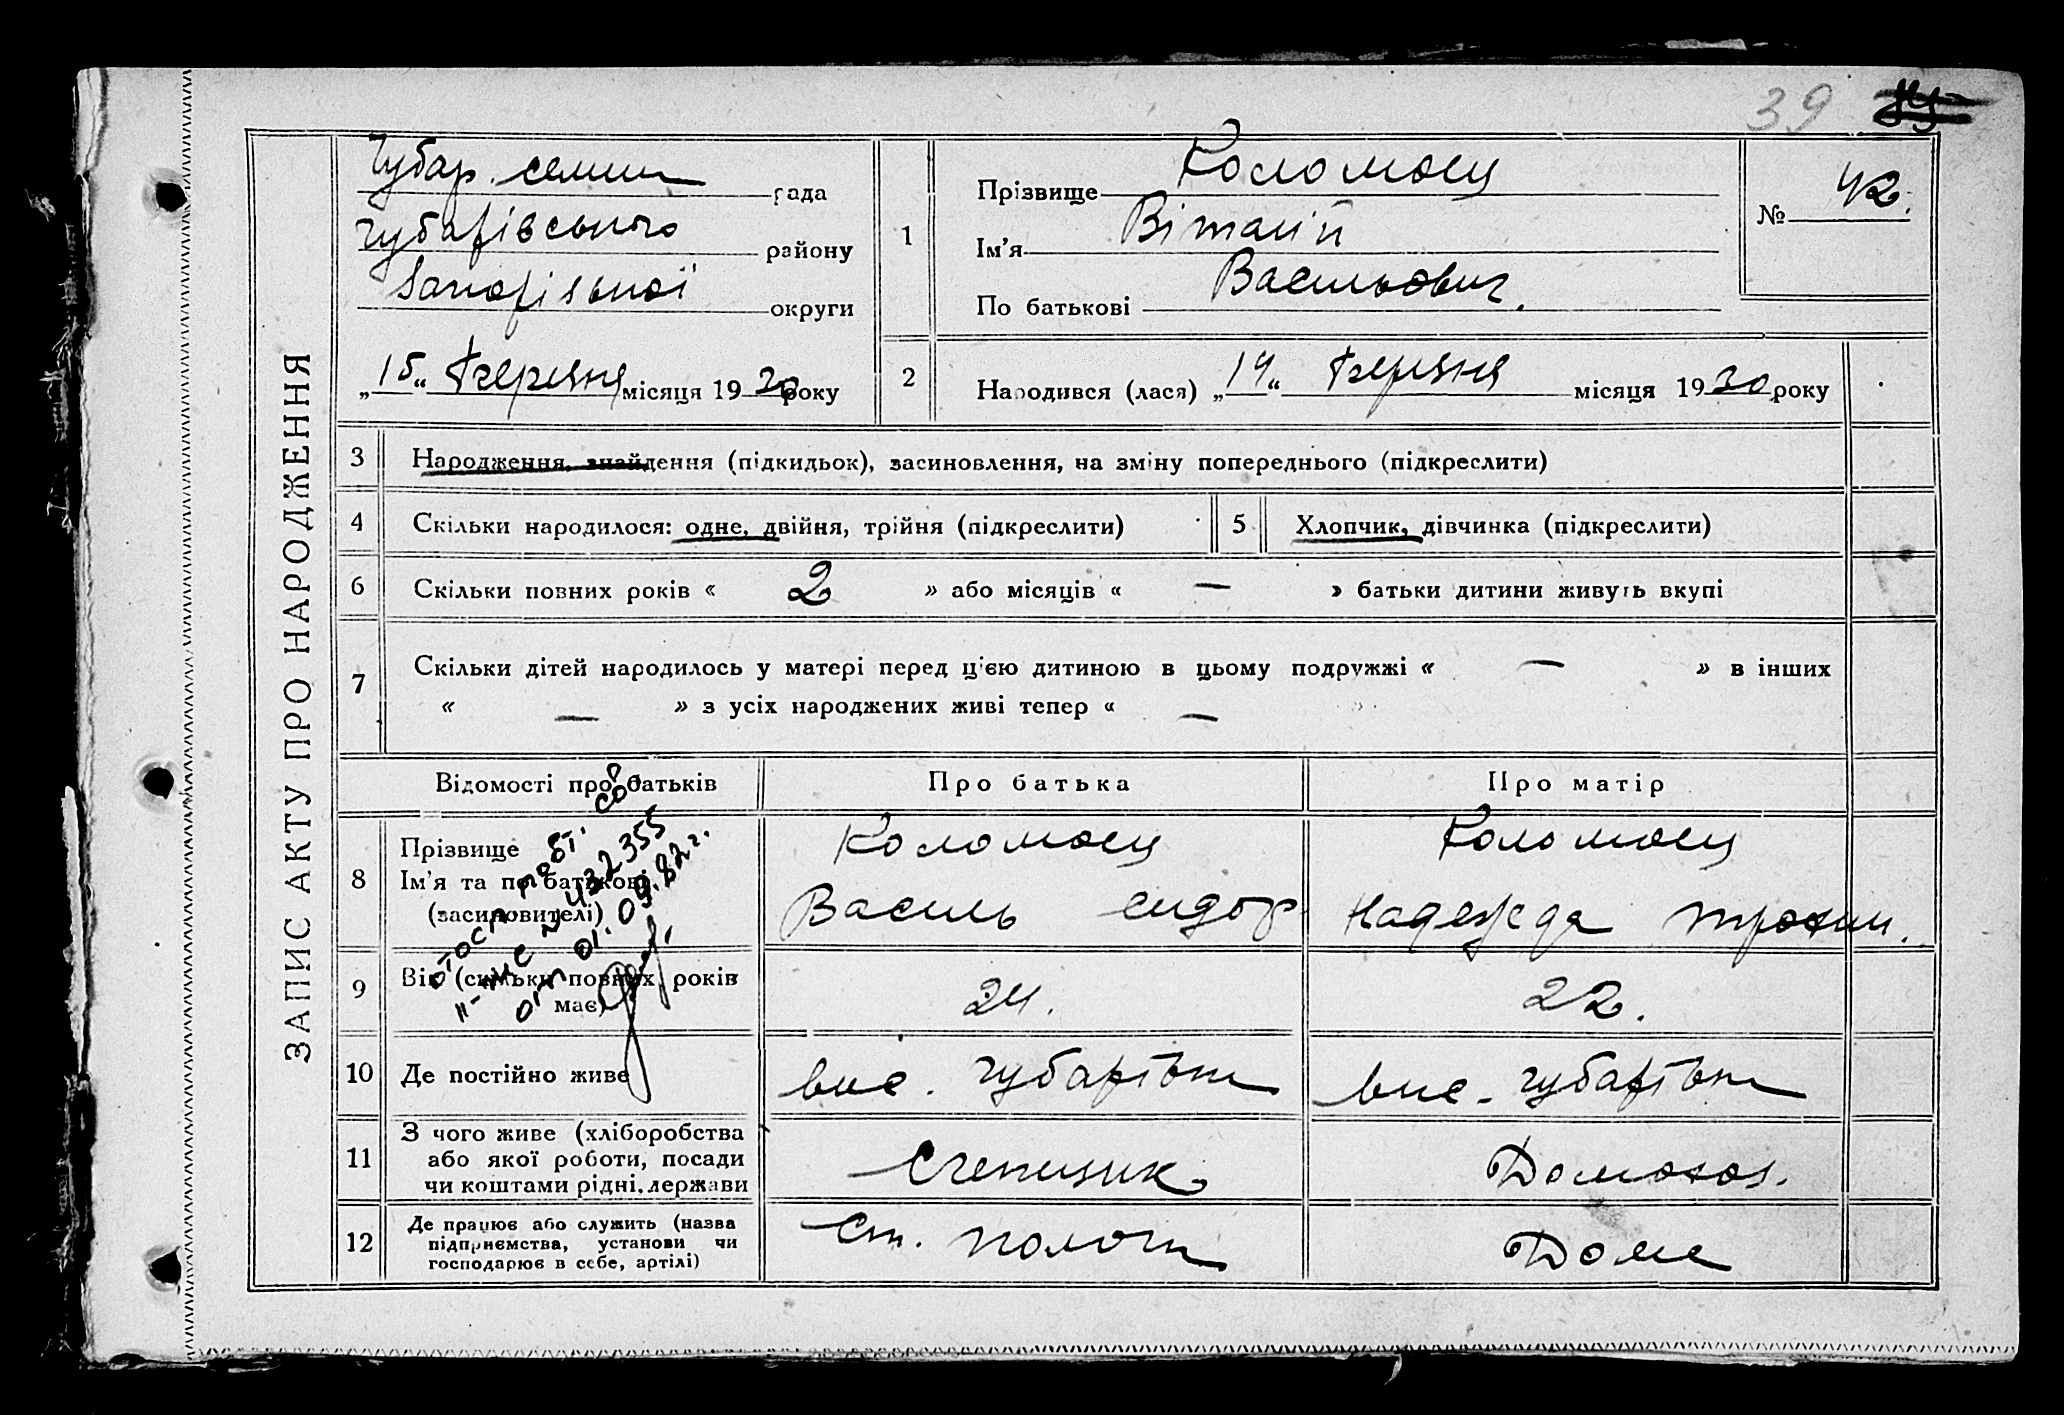 39
ЗАПИС АКТУ ПРО НАРОДЖЕННЯ
Чубар. селищ рада
Чубарівського району
Запорізької округи
„15“ Березня місяця 1930 року
1
Прізвище Коломоєц
Ім'я Віталій
По батькові Васильович.
№ 42.
2
Народився (лася) „14“ Березня місяця 1930 року
3 Народження, знайдення (підкидьок), засиновлення, на зміну попереднього (підкреслити)
4 Скільки народилося: одне, двійня, трійня (підкреслити)
5 Хлопчик, дівчинка (підкреслити)
6 Скільки повних років « 2 » або місяців « — » батьки дитини живуть вкупі
7 Скільки дітей народилось у матері перед цією дитиною в цьому подружжі « — » в інших
« — » з усіх народжених живі тепер « —
Відомості про батьків Про батька Про матір
8 Прізвище
Ім'я та по батькові
(засиновителі)
Коломоєц
Василь Сидор
Коломоєц
Надежда Трохим.
повт. СОР
II-ЖС № 432355
от 01.09.82 г.
9 Вік (скільки повних років
має)
24.
22.
10 Де постійно живе
вис. Чубарівка
вис. Чубарівка
11 З чого живе (хліборобства
або якої роботи, посади
чи коштами рідні, держави
Счепщик
Домохоз.
12 Де працює або служить (назва
підприємства, установи чи
господарює в себе, артілі)
Ст. Пологи
Дома